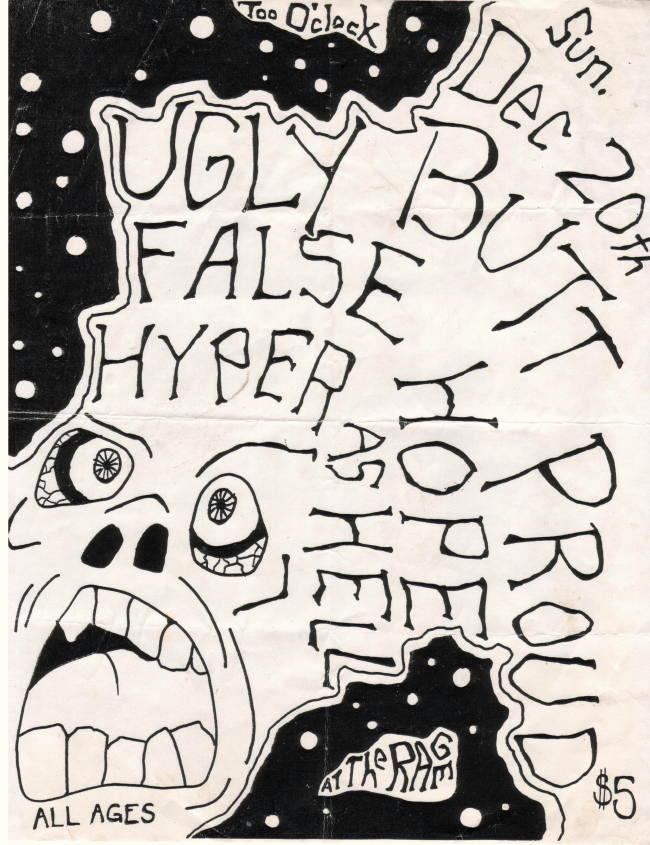 Too O'clock
Sun.
Dec 20th
UGLY BUTT PROUD
FALSE HOPE
HYPER AS HELL
AT The RAGE
$5
ALL AGES